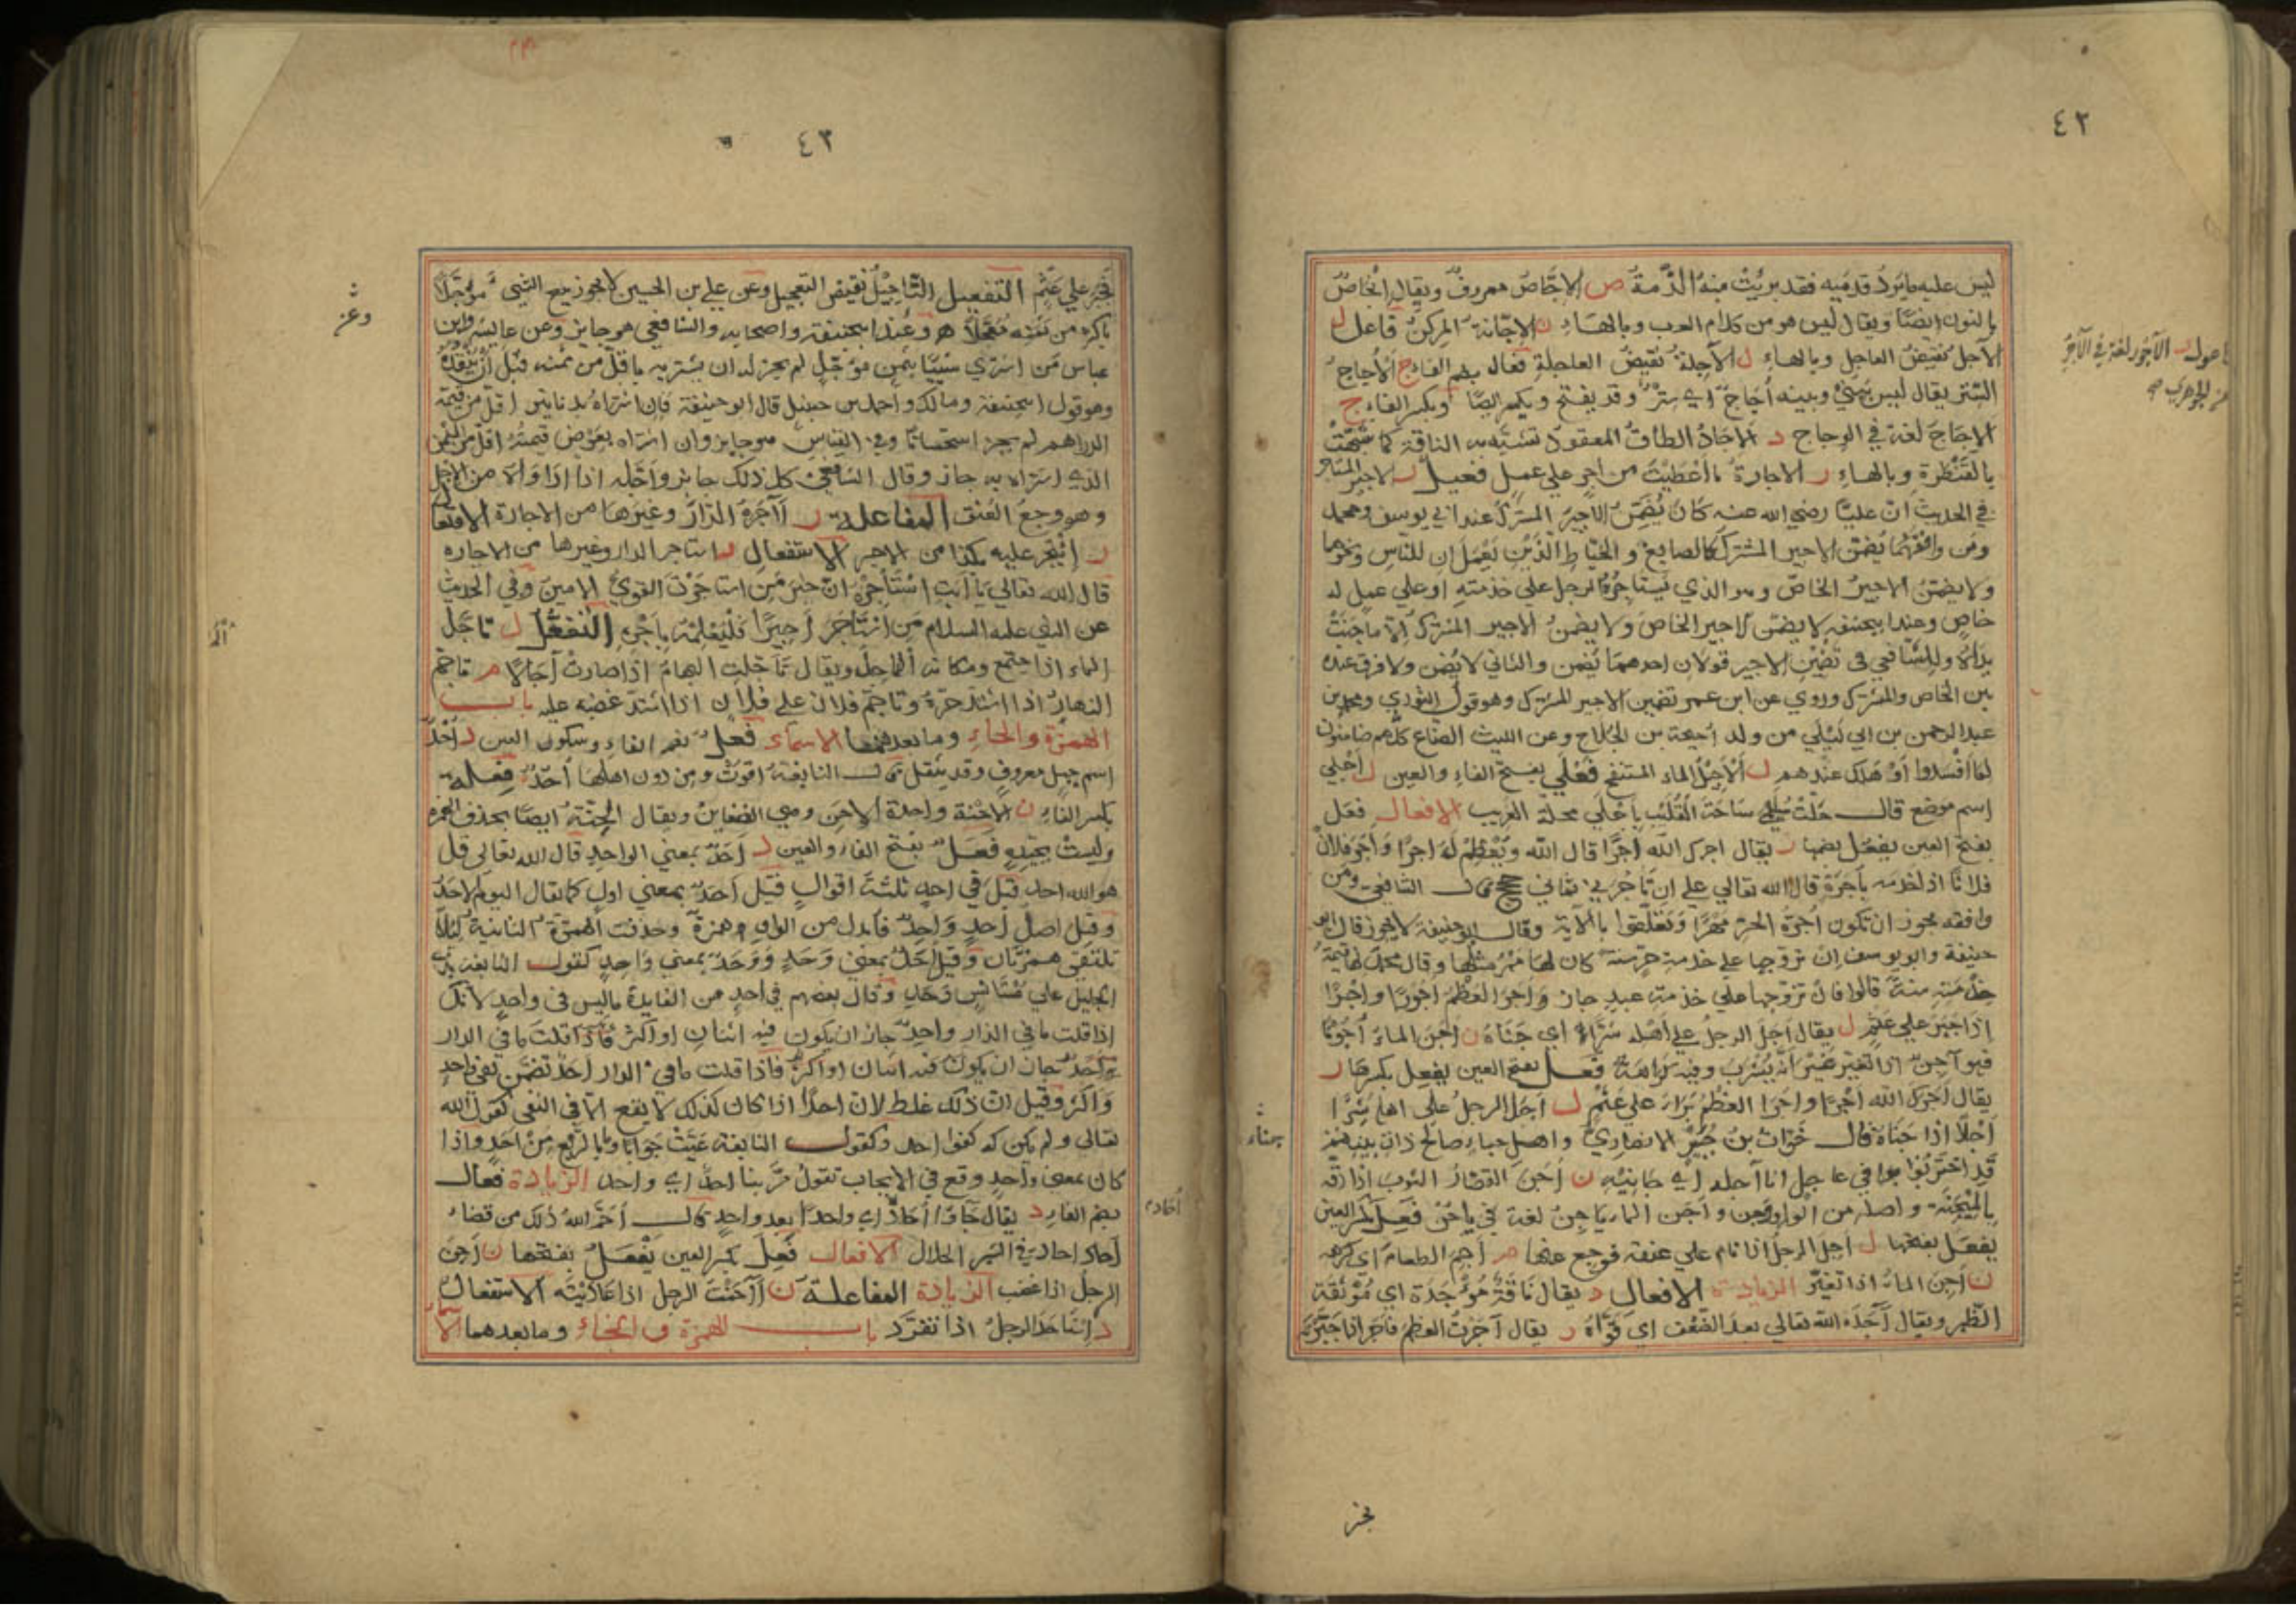 ٤٢
ليس عليه ما يَرد قدميه فقد بريَتْ منه الذّمة ص الاجّاص معروف ويقال انجاص
بالنون ايضا ويقال ليس هو من كلام العرب وبالهاء ن الاجّانة المركن فاعل ل
الآجل نقيض العاجل وبالهاء ل الآجلة نقيض العاجلة فعال بضم الفاء ج الأجاج
الستر يقال ليس بيني وبينه أجاج اي ستر وقد يفتح ويكسر ايضا وبكسر الفاء ج
الإجاج لغة في الوجاج د الاجاد الطاق المعقود تشبه به الناقة كما شبهت
بالقنطرة وبالهاء ر الاجارة ما أعطيت من اجر على عمل فعيل ر الاجير المستاجر
في الحديث ان عليّا رضي الله عنه كان يُضَمِّن الاجير المشترك عند ابي يوسف ومحمد
ومن وافقهما يضمن الاجير المشترك كالصايغ والخياط الذين يعملان للناس ونحوهما
ولا يضمن الاجير الخاص وهو الذي يستاجره الرجل على خدمته او على عمل له
خاص وعند ابيحنيفه لا يضمن الاجير الخاص ولا يضمن الاجير المشترك الا ما جنت
يداه وللشافعي في تضمين الاجير قولان احدهما يُضمن والثاني لا يُضمن ولا فرق عنده
بين الخاص والمشترك وروي عن ابن عمر تضمين الاجير المشترك وهو قول الثوري ومحمد بن
عبد الرحمن بن ابي ليلى من ولد أحيحة بن الجلاح وعن الليث الصناع كلهم ضامنون
لما افسدوا او هلك عندهم ل الأجيل الماء المستنقع فَعَلي بفتح الفاء والعين ل أجلي
اسم موضع قال حلت سليمى ساحة القليب بأجلى محلة الغريب الافعال فعَل
بفتح العين يفعُل بضمها ر يقال اجرك الله اجرا قال الله ويُعظِم له اجرا وأجر فلان
فلانا اذا خدمه بأجرة قال الله تعالي علي ان تأجُرَني ثماني حجج قال الشافعي ومن
وافقه يجوز ان تكون أجرة الحر مهرا وتعلقوا بالآية وقال ابو حنيفة لا يجوز قال ابو
حنيفة وابو يوسف ان تزوجها على خدمته حر سنة كان لها مهر مثلها وقال محمد لها قيمة
خدمته سنة قالوا فان تزوجها على خدمة عبد جاز وأجر العظم أجورا وأجرا
اذا جبر على عثم ل يقال أجل الرجل على أهله شرا اي جناه ن أجن الماء أجونا
فهو آجن اذا تغير غير أنه يُشرب وفيه كراهة فعَل بفتح العين يفعِل بكسرها ر
يقال أجرك الله اجرا وأجر العظم برأ على عثم ل أجل الرجل على اهله شرا
أجلا اذا جناه قال خوّات بن جبير الانصاري واهل خباء صالح ذات بينهم
قد احتربوا في عاجل انا آجله اي جانيه ن أجن القصار الثوب اذا دقه
بالميجنة واصله من الواو وجن وأجن الماء ياجن لغة في ياجن فعِل بكسر العين
يفعَل بفتحها ل أجل الرجل اذا نام على عنقه فوجع عنها م أجم الطعام اي كرهه
ن أجن الماء اذا تغير الزيادة الافعال د يقال ناقة مُؤجَدة اي موثقة
الظهر ويقال آجده الله تعالي بعد الضعف اي قوّاه ر يقال آجرت العظم فأجر اذا جبرته
الآجور لغة في الآجر
الجوهري
٤٣
فجبر على عثم التفعيل التأجيل نقيض التعجيل وعن علي بن الحسين لا يجوز بيع الشيء مؤجلا
باكثر من ثمنه معجلا وعند ابيحنيفة واصحابه والشافعي هو جايز وعن عايشه وابن
عباس من اشتري شيئا بثمن مؤجل لم يجز له ان يشتريه باقل من ثمنه قبل ان ينقده
وهو قول ابيحنيفة ومالك واحمد بن حنبل قال ابو حنيفة فان اشتراه بدنانير اقل من قيمة
الدراهم لم يجز استحسانا وفي القياس هو جايز وان اشتراه بعوض قيمته اقل من الثمن
الذي اشتراه به جاز وقال الشافعي كل ذلك جايز وأجّله اذا داواه من الاجل
وهو وجع العُنق المفاعلة ر آجره الدار وغيرها من الاجارة الافتعال
ر إئتجر عليه بكذا من الاجر الاستفعال ر استاجر الدار وغيرها من الاجارة
قال الله تعالي يا أبت استأجره ان خير من استاجرت القوي الامين وفي الحديث
عن النبي عليه السلام من استأجر اجيرا فليُعلمه بأجره التفعّل ل تأجّل
الماء اذا اجتمع ومكانه الماجل ويقال تأجّلت البهائم اذا صارت آجالا م تأجّم
النهار اذا اشتد حره وتأجم فلان على فلان اذا اشتد غضبه عليه باب
الهمزة والحاء وما بعدهما الاسماء فُعْل بضم الفاء وسكون العين د أُحْد
اسم جبل معروف وقد يثقل قال النابغة أقوت ومن دون اهلها أحد فِعلة
بكسر الفاء ن الإحنة واحدة الإحن وهي الضغاين ويقال الحِنَة ايضا بحذف الهمزة
وليست بجيدة فَعَل بفتح الفاء والعين د أحد بمعني الواحد قال الله تعالي قل
هو الله احد قيل في احد ثلثة اقوال قيل أحد بمعني اول كما يقال اليوم الاحد
وقيل اصل أحد واحد فأبدل من الواو همزة وحذفت الهمزة الثانية لئلا
تلتقي همزتان وقيل أحد بمعني وَحَد ووَحَد بمعني واحد كقول النابغة بذي
الجليل على مُستأنس وحد وقال بعضهم في احد من الفايدة ما ليس في واحد لانك
اذا قلت ما في الدار واحد جاز ان يكون فيه اثنان او اكثر فاذا قلت ما في الدار
أحد جاز ان يكون فيه اثنان او اكثر فاذا قلت ما في الدار احد تضمن نفي واحد
واكثر وقيل ان ذلك غلط لان احدا اذا كان كذلك لا يقع الا في النفي كقول الله
تعالى ولم يكن له كفوا احد وكقول النابغة عيّت جوابا وما بالربع من احد واذا
كان بمعني واحد وقع في الايجاب تقول مرّ بنا احد اي واحد الزيادة فُعال
بضم الفاء د يقال جاؤا أُحاد اي واحدا بعد واحد قال أحمّ الله ذلك من قضاء
أحاد احاد في الشهر الحلال الافعال فَعِلَ بكسر العين يفعَل بفتحها ن أحِن
الرجل اذا غضب الزيادة المفاعلة ن آحنت الرجل اذا عاديته الاستفعال
د استأحد الرجل اذا تفرد باب الهمزة والخاء وما بعدهما الاسماء
وعن
أحاد